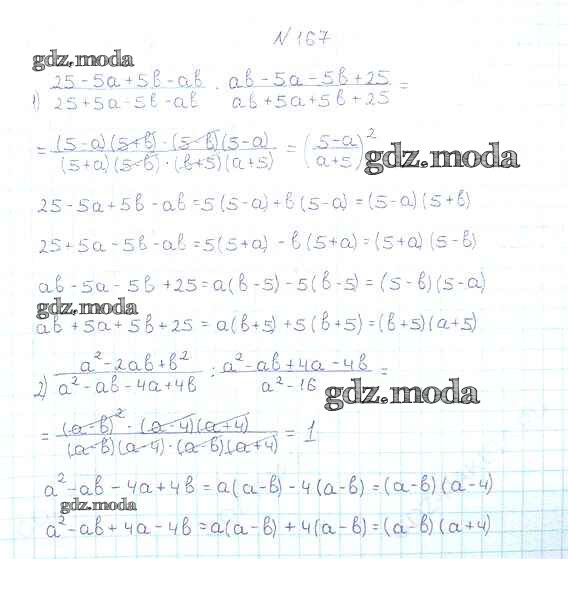 N 167
gdz.moda
1) (25 - 5a + 5b - ab)/(25 + 5a - 5b - ab) · (ab - 5a - 5b + 25)/(ab + 5a + 5b + 25) =
= ((5-a)(5+b) · (5-b)(5-a))/((5+a)(5-b) · (b+5)(a+5)) = ((5-a)/(a+5))²
gdz.moda
25 - 5a + 5b - ab = 5(5-a) + b(5-a) = (5-a)(5+b)
25 + 5a - 5b - ab = 5(5+a) - b(5+a) = (5+a)(5-b)
ab - 5a - 5b + 25 = a(b-5) - 5(b-5) = (5-b)(5-a)
gdz.moda
ab + 5a + 5b + 25 = a(b+5) + 5(b+5) = (b+5)(a+5)
2) (a² - 2ab + b²)/(a² - ab - 4a + 4b) : (a² - ab + 4a - 4b)/(a² - 16) =
gdz.moda
= ((a-b)² · (a-4)(a+4))/((a-b)(a-4) · (a-b)(a+4)) = 1
a² - ab - 4a + 4b = a(a-b) - 4(a-b) = (a-b)(a-4)
gdz.moda
a² - ab + 4a - 4b = a(a-b) + 4(a-b) = (a-b)(a+4)